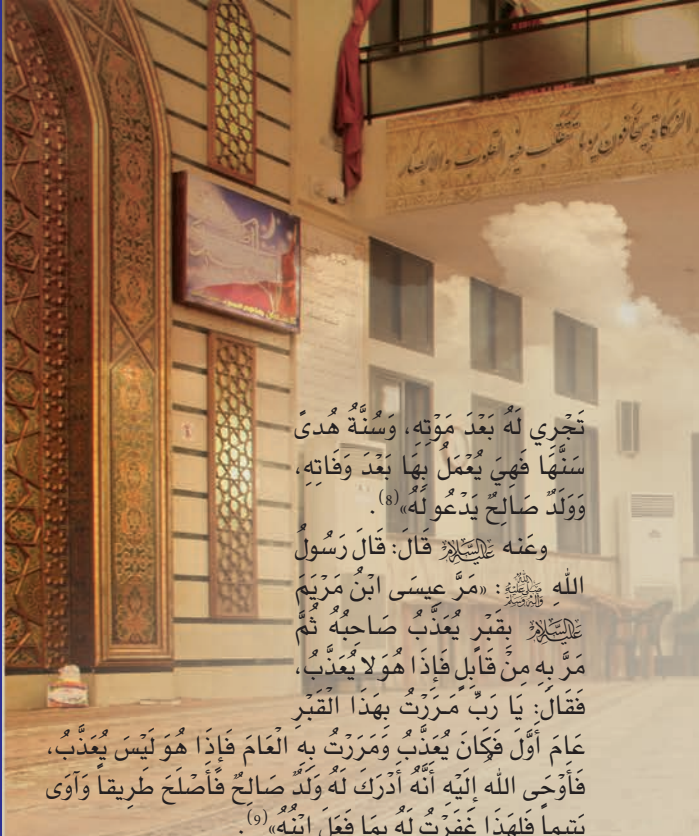 الزكاة يخافون يوما تتقلب فيه القلوب والأبصار
تَجْرِي لَهُ بَعْدَ مَوْتِهِ، وَسُنَّةُ هُدىً
سَنَّهَا فَهِيَ يُعْمَلُ بِهَا بَعْدَ وَفَاتِهِ،
وَوَلَدٌ صَالِحٌ يَدْعُو لَهُ»(8).
وعَنه عَلَيْهِ السَّلَامُ قَالَ: قَالَ رَسُولُ
اللهِ صَلَّى اللهُ عَلَيْهِ وَآلِهِ وَسَلَّمَ: «مَرَّ عِيسَى ابْنُ مَرْيَمَ
عَلَيْهِ السَّلَامُ بِقَبْرٍ يُعَذَّبُ صَاحِبُهُ ثُمَّ
مَرَّ بِهِ مِنْ قَابِلٍ فَإِذَا هُوَ لا يُعَذَّبُ،
فَقَالَ: يَا رَبِّ مَرَرْتُ بِهَذَا الْقَبْرِ
عَامَ أَوَّلَ فَكَانَ يُعَذَّبُ وَمَرَرْتُ بِهِ الْعَامَ فَإِذَا هُوَ لَيْسَ يُعَذَّبُ،
فَأَوْحَى اللهُ إِلَيْهِ أَنَّهُ أَدْرَكَ لَهُ وَلَدٌ صَالِحٌ فَأَصْلَحَ طَرِيقاً وَآوَى
يَتِيماً فَلِهَذَا غَفَرْتُ لَهُ بِمَا فَعَلَ ابْنُهُ»(9).